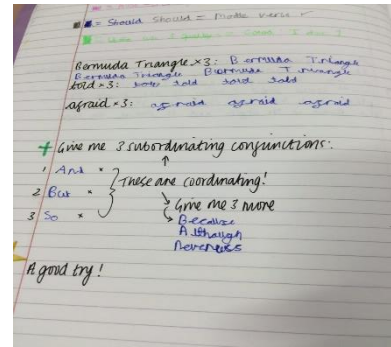 = Should Should = Modal verb ✓
Bermuda Triangle ×3: Bermuda Triangle
Bermuda Triangle Bermuda Triangle
told ×3: told told told
afraid ×3: afraid afraid afraid
+ Give me 3 subordinating conjunctions:
1 And ×
These are coordinating!
2 But ×
Give me 3 more
3 So ×
Because
Although
A good try!